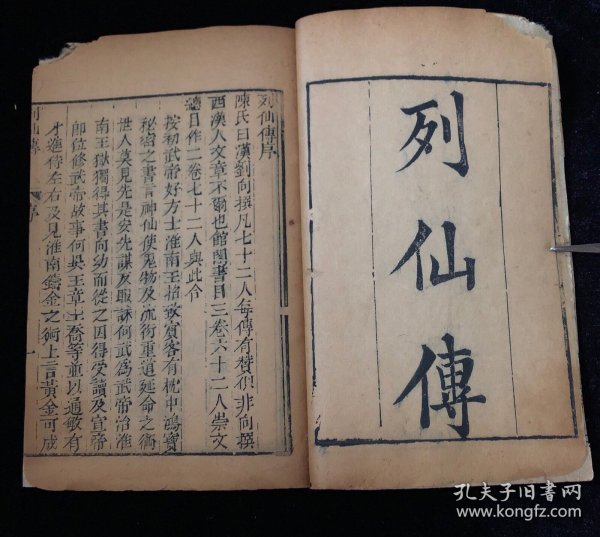 列仙傳
列仙傳序
陳氏曰漢劉向撰凡七十二人每傳有贊似非向撰
西漢人文章不爾也館閣書目三卷六十二人崇文
總目作二卷七十二人與此合
按初武帝好方士淮南王招致賓客有枕中鴻寶
秘密之書言神仙使鬼物及重道延命之術
世人莫見先是安先謀反
南王獄獨得其書向幼而從之因得受讀及宣帝
即位修武帝故事向與王章王喬等並以通敏有
才進侍左右及見淮南鑄金之術上言黃金可成
列仙傳 序 一
孔夫子旧书网
www.kongfz.com